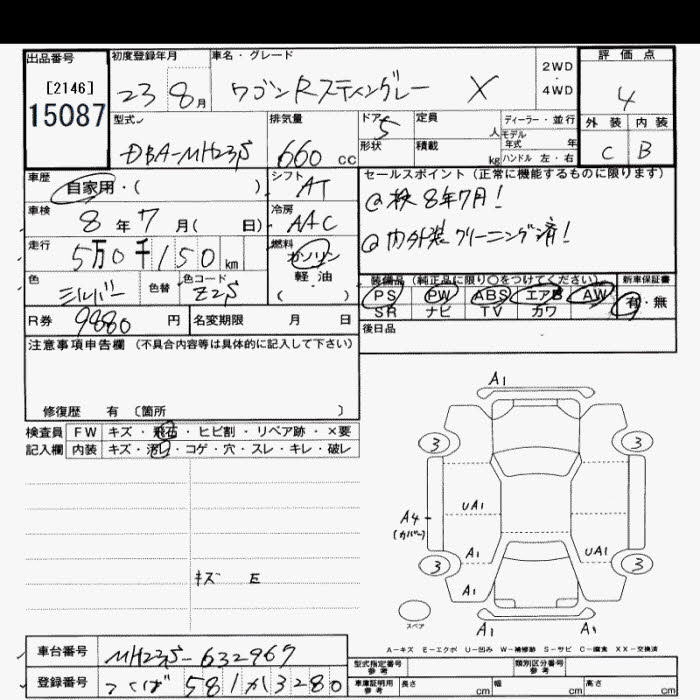 出品番号
[2146]
15087
初度登録年月
23 8月
車名・グレード
ワゴンRスティングレー X
2WD
・
4WD
評価点
4
外装 内装
C B
型式
DBA-MH23S
排気量
660 CC
ドア 5
形状
定員 人
積載 kg
ディーラー・並行
モデル年式 年
ハンドル 左・右
車歴
自家用・( )
シフト
AT
車検
8年7月( 日)
冷房
AAC
走行
5万0千150km
燃料
ガソリン
軽油
( )
色
シルバー
色替
色コード
Z2S
R券 9880 円
名変期限 月 日
セールスポイント (正常に機能するものに限ります)
@検8年7月!
@内外装クリーニング済!
装備品 (純正品に限り○をつけてください)
PS PW ABS エアB AW
SR ナビ TV カワ
新車保証書
有・無
後日品
注意事項申告欄 (不具合内容等は具体的に記入して下さい)
修復歴 有 〔箇所 〕
検査員記入欄
FW キズ・飛石・ヒビ割・リペア跡・×要
内装 キズ・汚レ・コゲ・穴・スレ・キレ・破レ
キズ E
A1
3 3
UA1
A4
(カバー)
A1 UA1
3 3
A1
スペア
A1 A1
A-キズ E-エクボ U-凹み W-補修跡 S-サビ C-腐食 XX-交換済
車台番号 MH23S-632967
登録番号 つくば 581 か 3280
型式指定番号
参考
類別区分番号
参考
車庫証明用
参考
長さ cm
幅 cm
高さ cm